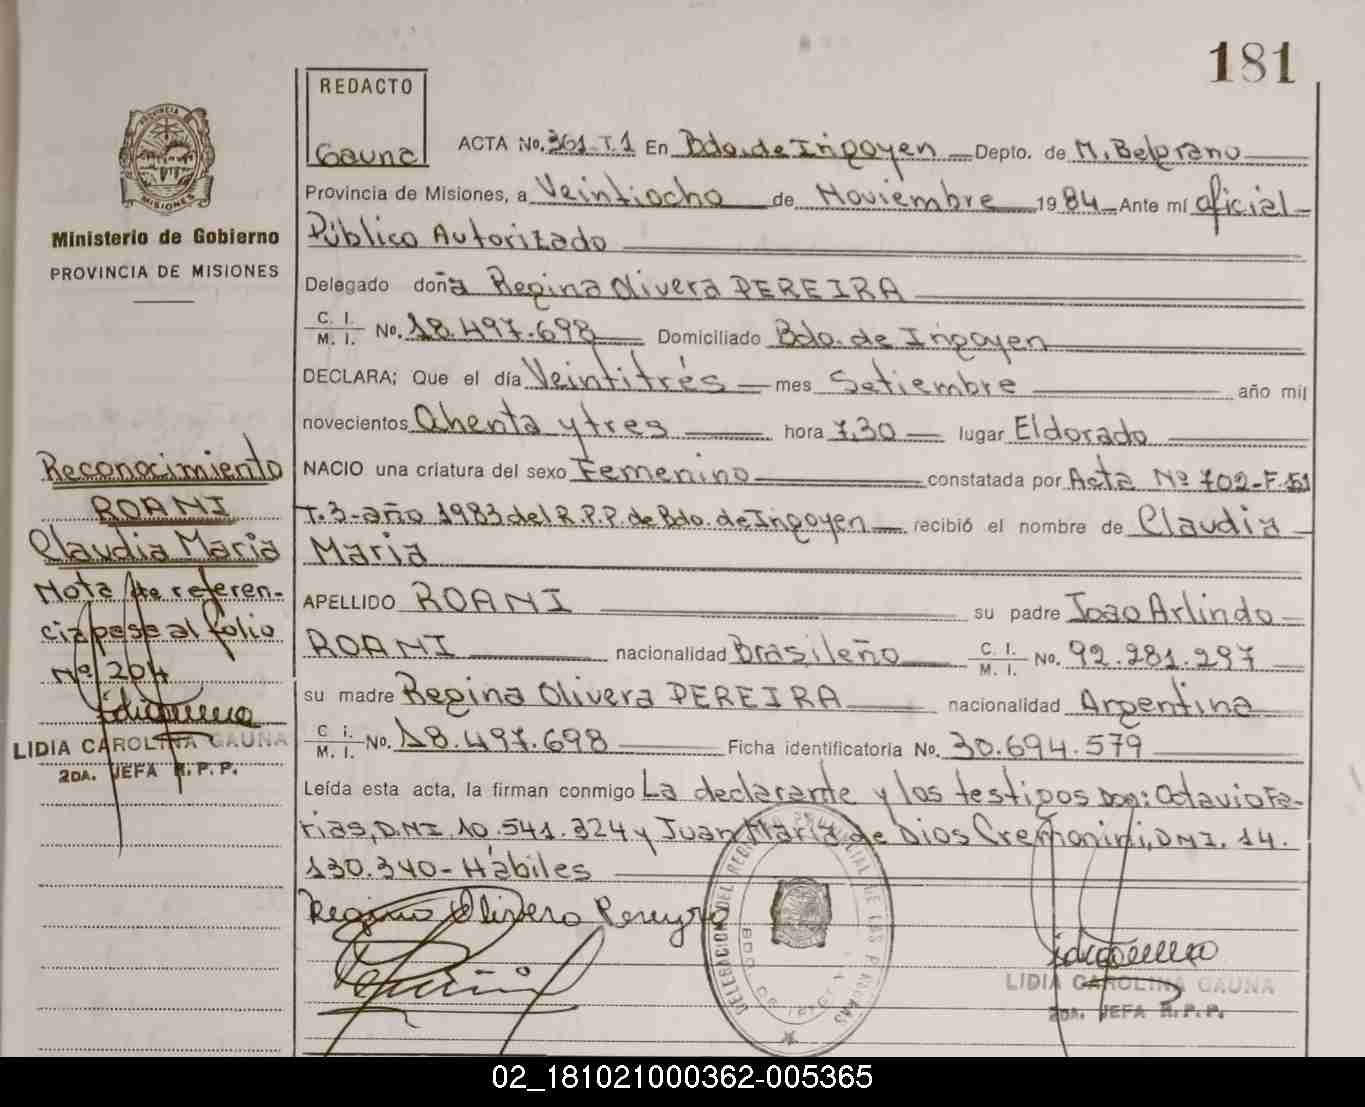 181
REDACTO
Gauna
ACTA No. 361-T.1 En Bdo. de Irigoyen Depto. de M. Belgrano
Provincia de Misiones, a Veintiocho de Noviembre 1984 Ante mí oficial
Público Autorizado
Delegado doña Regina Olivera PEREIRA
C. I. / M. I. No. 18.497.698 Domiciliado Bdo. de Irigoyen
DECLARA; Que el día Veintitrés mes Setiembre año mil
novecientos Ohenta y tres hora 7,30 lugar Eldorado
NACIO una criatura del sexo Femenino constatada por Acta Nº 702-F.51
T.3-año 1983 del R.P.P. de Bdo. de Irigoyen recibió el nombre de Claudia
Maria
APELLIDO ROANI su padre Joao Arlindo
ROANI nacionalidad Brasileño C. I. / M. I. No. 92.281.297
su madre Regina Olivera PEREIRA nacionalidad Argentina
C. I. / M. I. No. 18.497.698 Ficha identificatoria No. 30.694.579
Leída esta acta, la firman conmigo La declarante y los testigos Don: Octavio Fa-
rias, D.N.I. 10.541.324 y Juan María de Dios Cremonini, DNI. 14.
130.340- Hábiles
Regina Olivera Pereyra
DELEGACION DEL REGISTRO PROVINCIAL DE LAS PERSONAS
LIDIA CAROLINA GAUNA
2DA. JEFA R.P.P.
PROVINCIA
MISIONES
Ministerio de Gobierno
PROVINCIA DE MISIONES
Reconocimiento
ROANI
Claudia Maria
Nota de referen-
cia pase al folio
Nº 204
LIDIA CAROLINA GAUNA
2DA. JEFA R.P.P.
02_181021000362-005365